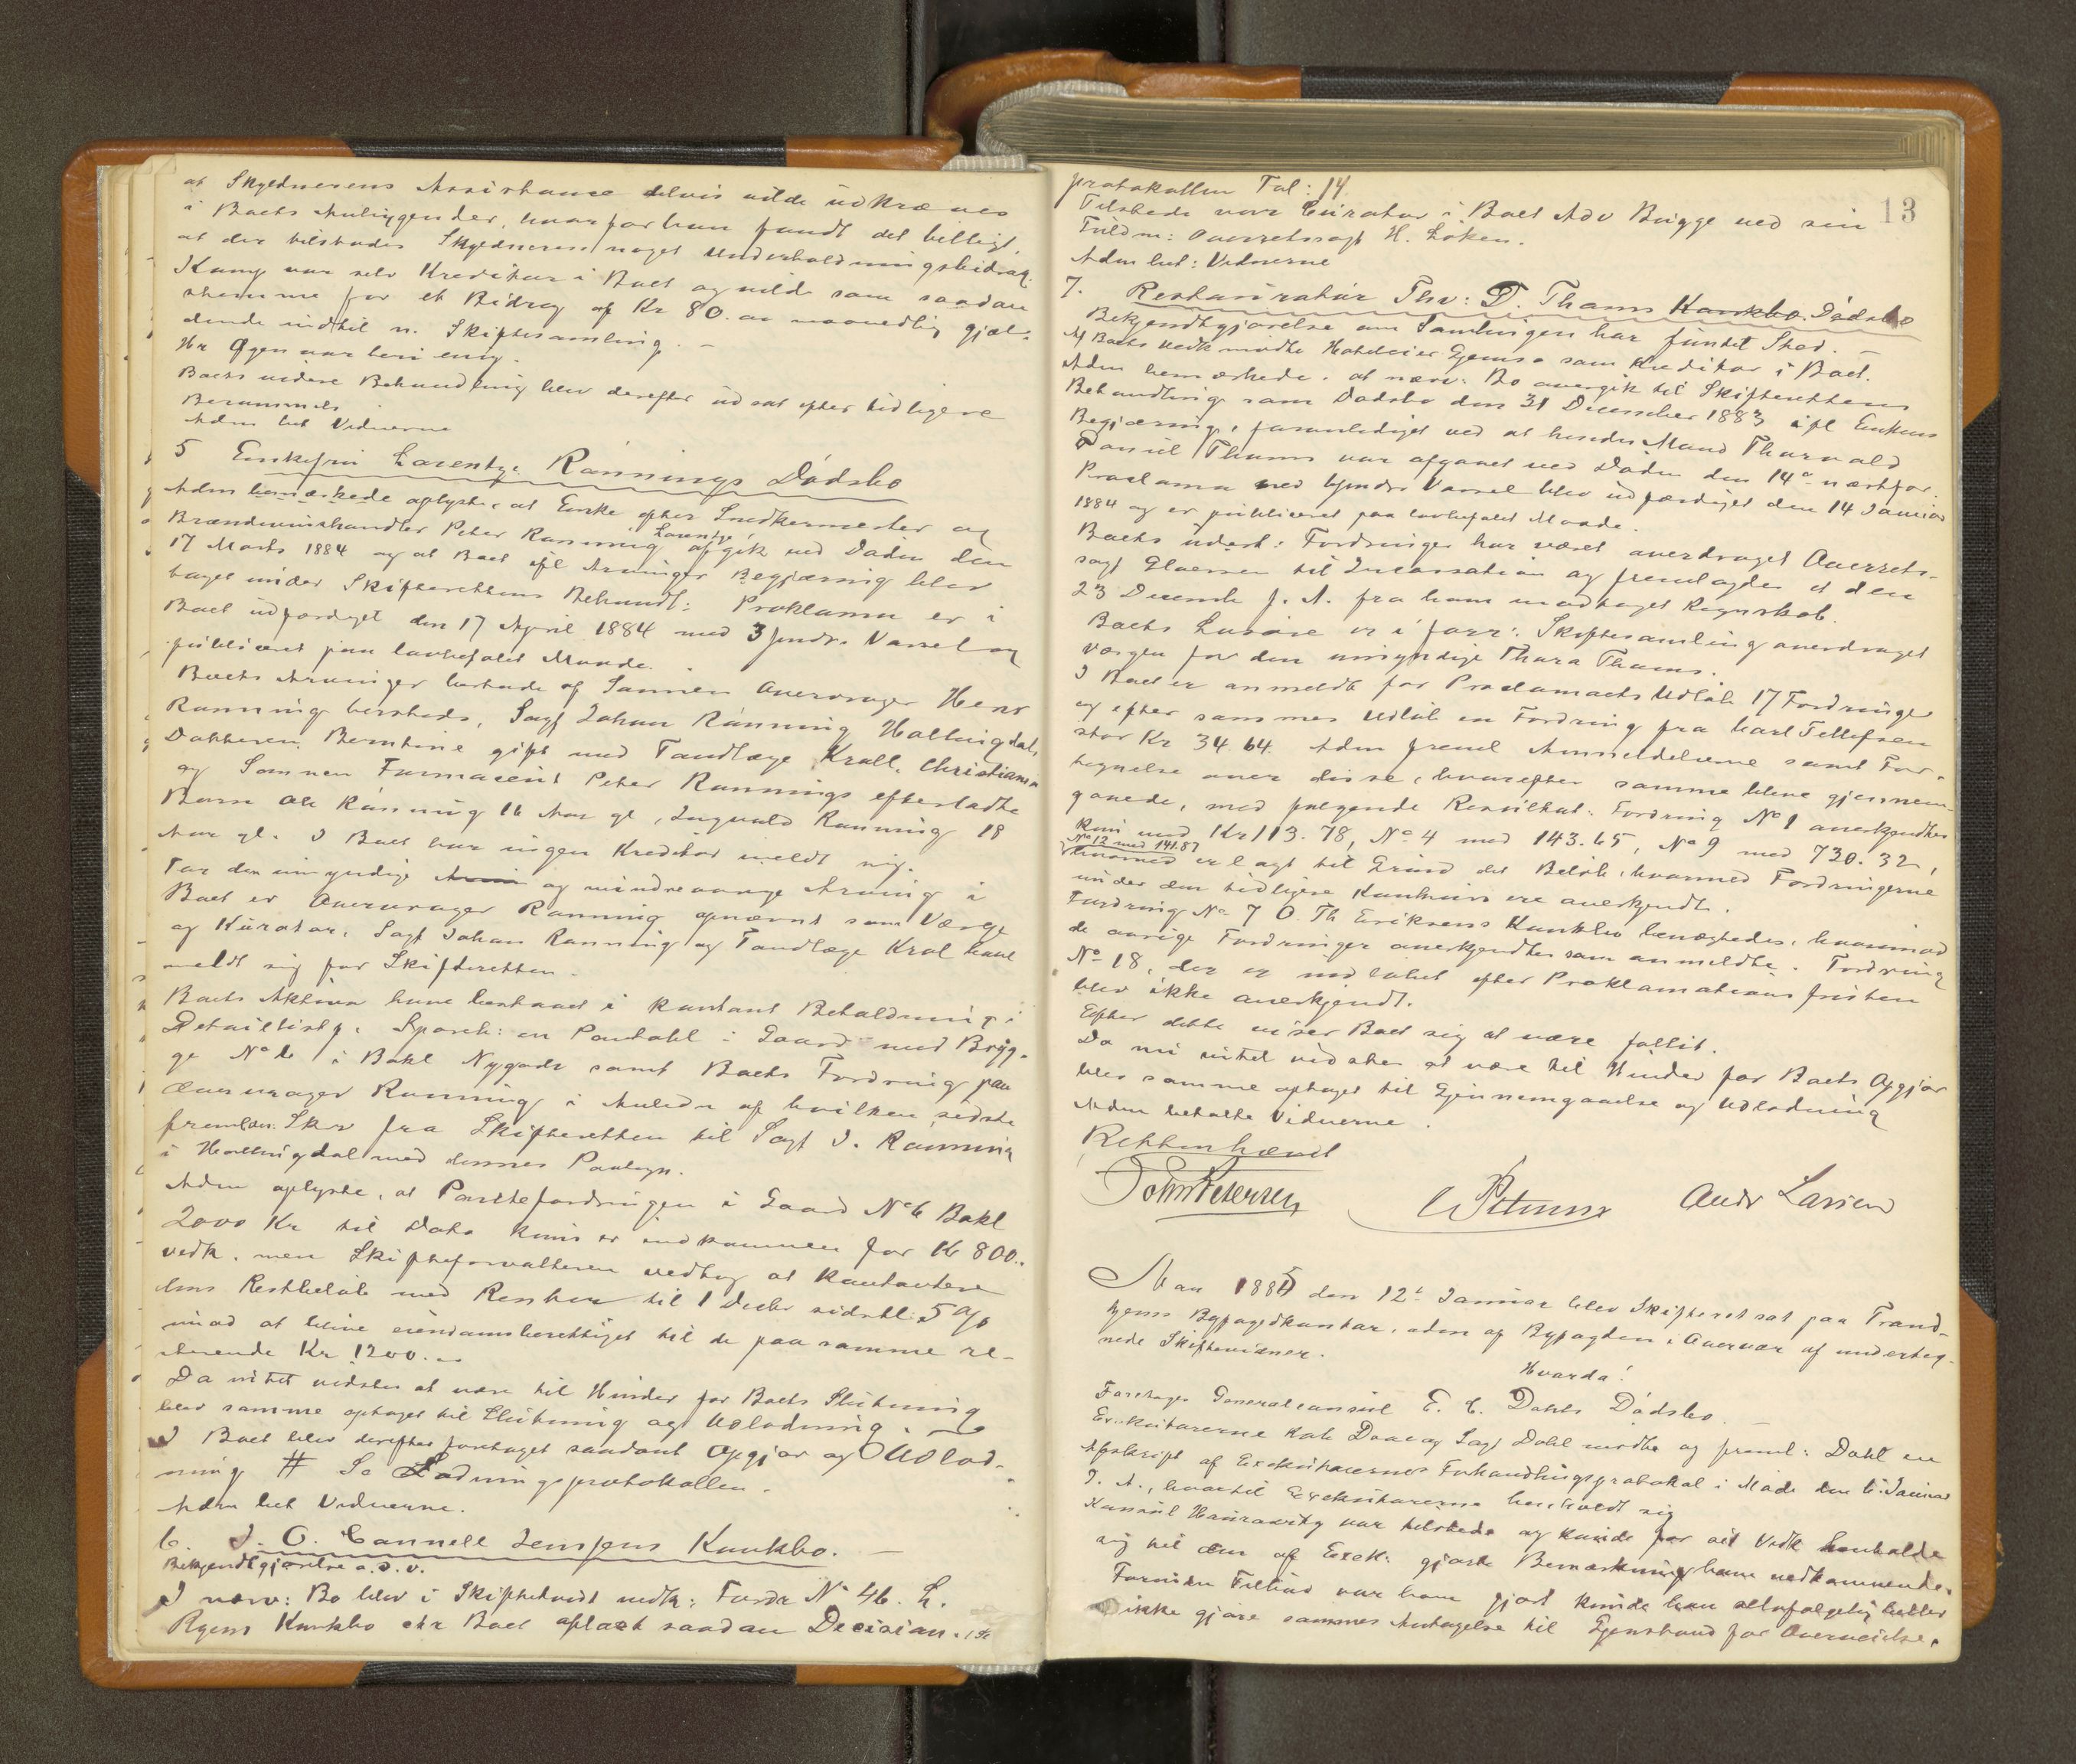 at Skyldnerens Assistance delvis vilde udkræves
i Boets Anliggender, hvorfor han fandt det billigt,
at der tilstodes Skyldneren noget Underholdningsbidrag.
Kamp var selv Kreditor i Boet og vilde som saadan
stemme for et Bidrag af Kr 80.00 maanedlig gjæl-
dende indtil n. Skiftesamling. —
Hr Øgen var heri enig.
Boets videre Behandling blev derefter udsat efter tidligere
Berammels
Adm bet Vidnerne
5 Enkefru Lorentze Rønnings Dødsbo
Adm bemærkede oplyste, at Enke efter Snedkermester og
Brændevinshandler Peter Rønning Lorentze afgik ved Døden den
17 Marts 1884 og at Boet ifl Arvinger Begjæring blev
taget under Skifterettens Behandl: Proklama er i
Boet udfærdiget den 17 April 1884 med 3 Mndrs Varsel og
publiceret paa lovbefalet Maade.
Boets Arvinger bestode af Sønnen Overvrager Henr
Rønning hersteds, Sagf Johan Rønning Hallingdal,
Datteren Berntine gift med Tandlæge Krall, Christiania
og Sønnen Farmaceut Peter Rønnings efterladte
Børn Ole Rønning 16 Aar gl, Ingvald Rønning 18
Aar gl. I Boet har ingen Kreditor meldt sig.
For den umyndige og mindreaarige Arving i
Boet er Overvrager Rønning opnævnt som Værge
og Kurator, Sagf Johan Rønning og Tandlæge Kral have
meldt sig for Skifteretten.
Boets Aktiva have bestaaet i kontant Beholdning i
Detaillistf. Spareb: en Panteobl i Gaard med Bryg-
ge No 6 i Bakl Nygade samt Boets Fordring paa
Overvrager Rønning i Anledn af hvilken sidste
fremlæs: Skr fra Skifteretten til Sagf J. Rønning
i Hallingdal med dennes Paategn.
Adm oplyste, at Pantefordringen i Gaard No 6 Bakl
2000 Kr til Dato kuns er indkommen for Kr 800..
vedk. men Skifteforvalteren vedtog at kontantere
dens Restbeløb med Renter til 1 Decbr sidstl: 5 %
imod at blive eiendomsberettiget til de paa samme re-
sterende Kr 1200.00
Da intet vidstes at være til Hinder for Boets Slutning
blev samme optaget til Slutning og Udlodning.
I Boet blev derefter foretaget saadant Opgjør og Udlod-
ning # Se Lodningsprotokollen.
Adm bet Vidnerne.
6. J. C. Cannell Jensens Konkbo. —
Bekjendtgjørelse o.s.v.
I nærv: Bo blev i Skifteboet vedk: Fordr No 46. H.
Ryens Konkbo ctr Boet oplæst saadan Decision. se
13
protokollen Fol: 14
Tilstede var Curator i Boet Adv Brigge ved sin
Fuldm: Overretssagf H. Loken.
Adm bet: Vidnerne
7. Restauratør Thv: D. Thams Konkbo. Dødsbo
Bekjendtgjørelse om Samlingen har fundet Sted. —
Af Boets Vedk mødte Hoteleier Gjemsø som Kreditor i Boet.
Adm bemærkede, at nærv: Bo overgik til Skifterettens
Behandling som Dødsbo den 31 December 1883 ifl Enkens
Begjæring, foranlediget ved at hendes Mand Thorvald
Daniel Thams var afgaaet ved Døden den 14de næstfor.
Proclama med 6 mndrs Varsel blev udfærdiget den 14 Januar
1884 og er publiceret paa lovbefalet Maade.
Boets udest: Fordringer har været overdraget Overrets-
sagf Gløersen til Incassation og fremlagdes et den
23 Decembr f. A. fra ham modtaget Regnskab.
Boets Løsøre er i forr: Skiftesamling overdraget
Værgen for den umyndige Thora Thams.
I Boet er anmeldt før Proclamaets Udløb 17 Fordringer
og efter sammes Udløb en Fordring fra Carl Tellefsen
stor Kr 34.64. Adm freml Anmeldelserne samt For-
tegnelse over disse, hvorefter samme bleve gjennem-
gaaede, med følgende Resultat: Fordring No 1 anerkjendtes
kun med Kr 113.78, No 4 med 143.65, No 9 med 730.32,
No 12 med 141.87
hvorved er lagt til Grund det Beløb, hvormed Fordringerne
under den tidligere Konkurs ere anerkjendt.
Fordring No 7 O. Th Eriksens Konkbo benægtedes, hvorimod
de øvrige Fordringer anerkjendtes som anmeldte. Fordring
No 18, der er indløbet efter Proklamationsfristen
blev ikke anerkjendt.
Efter dette viser Boet sig at være fallit.
Da nu intet vidstes at være til Hinder for Boets Opgjør
blev samme optaget til Gjennemgaaelse og Udlodning
Adm betalte Vidnerne.
Retten hævet
John Petersen Andr Larsen
Aar 1885 den 12te Januar blev Skifteret sat paa Trond-
hjems Byfogedkontor, adm af Byfogden i Overvær af underteg-
nede Skiftevidner.
Hvorda!
Foretoges Generalconsul E. C. Dahls Dødsbo. —
Exekutorerne Kab Daae og Sagf Dahl mødte og freml: Dahl en
Afskrift af Exekutorernes Forhandlingsprotokol i Møde den 6 Januar
d. A., hvortil Exekutorerne henholdt sig
Konsul Huitfeldt var tilstede og kunde for sit Vedk henholde
sig til den af Exek: gjorte Bemærkning ham vedkommende.
Foruden Tilbud var ham gjort kunde han altsaafølgelig heller
ikke gjøre sammes Antagelse til Gjenstand for Overveielse.